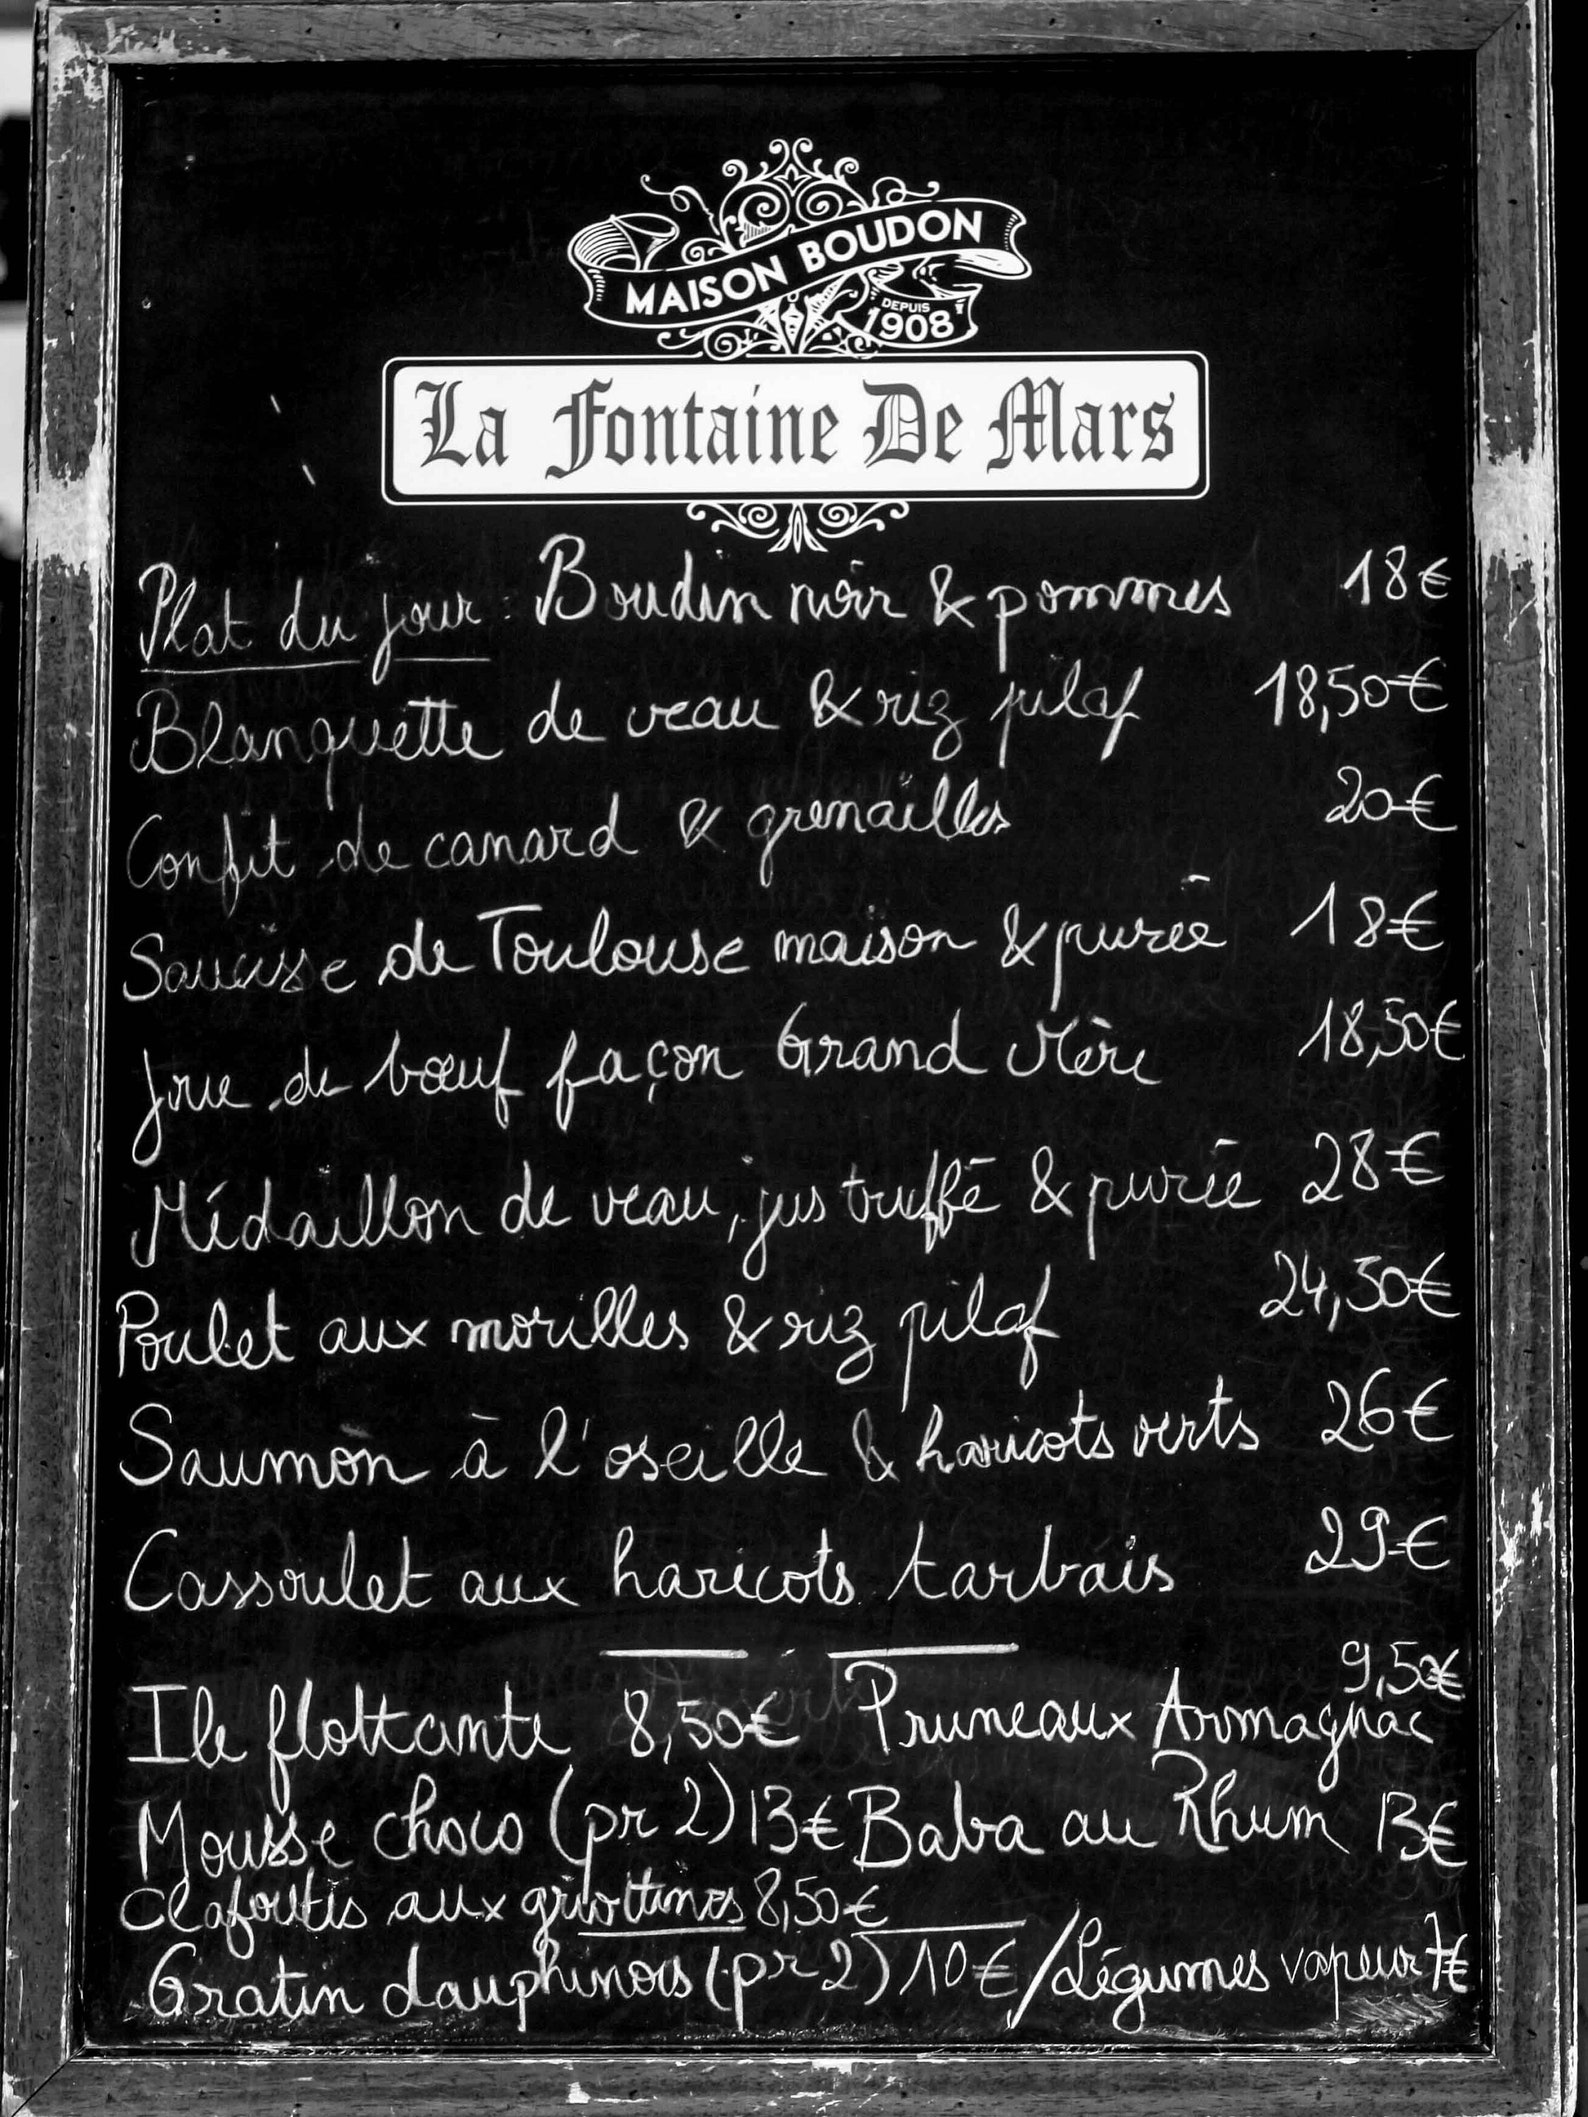 MAISON BOUDON
DEPUIS 1908
La Fontaine De Mars
Plat du jour : Boudin noir & pommes 18€
Blanquette de veau & riz pilaf 18,50€
Confit de canard & grenailles 20€
Saucisse de Toulouse maison & purée 18€
Joue de bœuf façon Grand Mère 18,50€
Médaillon de veau, jus truffé & purée 28€
Poulet aux morilles & riz pilaf 24,50€
Saumon à l'oseille & haricots verts 26€
Cassoulet aux haricots tarbais 29€
Ile flottante 8,50€ Pruneaux Armagnac 9,50€
Mousse choco (pr 2) 13€ Baba au Rhum 13€
Clafoutis aux griottines 8,50€
Gratin dauphinois (pr 2) 10€ / Légumes vapeur 7€